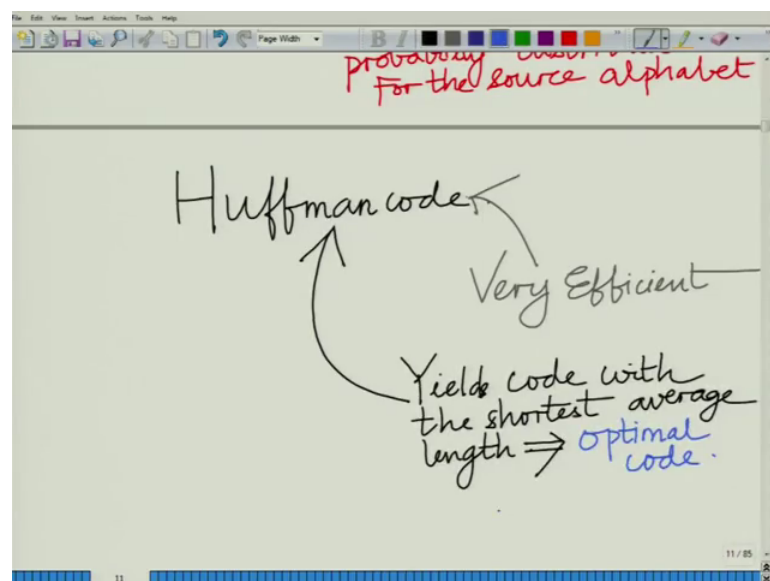 File Edit View Insert Actions Tools Help
Page Width
B I
For the source alphabet
Huffman code
Very Efficient
Yields code with
the shortest average
length ⇒ optimal
code.
11/85
11